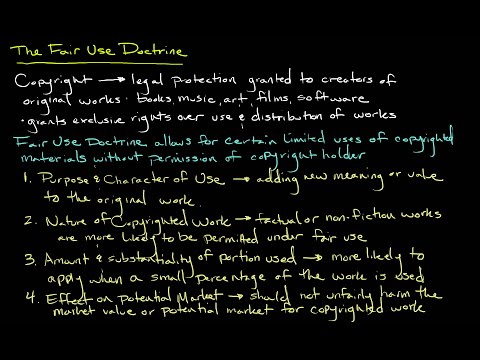 The Fair Use Doctrine
Copyright → legal protection granted to creators of
original works: books, music, art, films, software
• grants exclusive rights over use & distribution of works
Fair Use Doctrine allows for certain limited uses of copyrighted
materials without permission of copyright holder.
1. Purpose & Character of Use → adding new meaning or value
to the original work.
2. Nature of Copyrighted Work → factual or non-fiction works
are more likely to be permitted under fair use
3. Amount & substantiality of portion used → more likely to
apply when a small percentage of the work is used
4. Effect on Potential Market → should not unfairly harm the
market value or potential market for copyrighted work